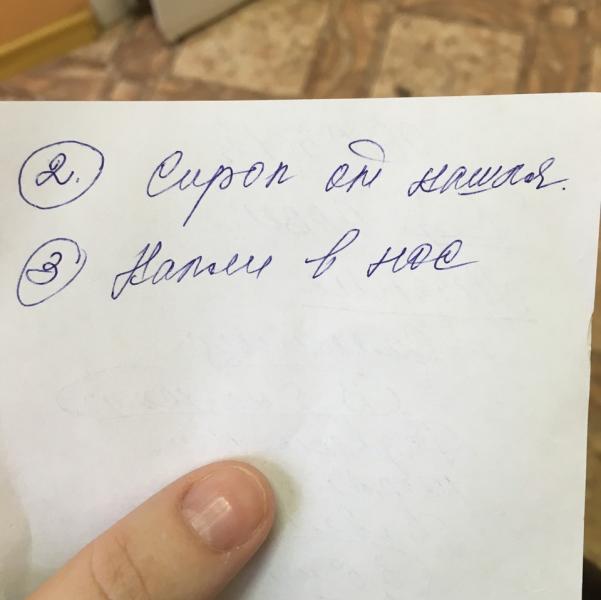 2. Сироп от кашля.
3) Капли в нос